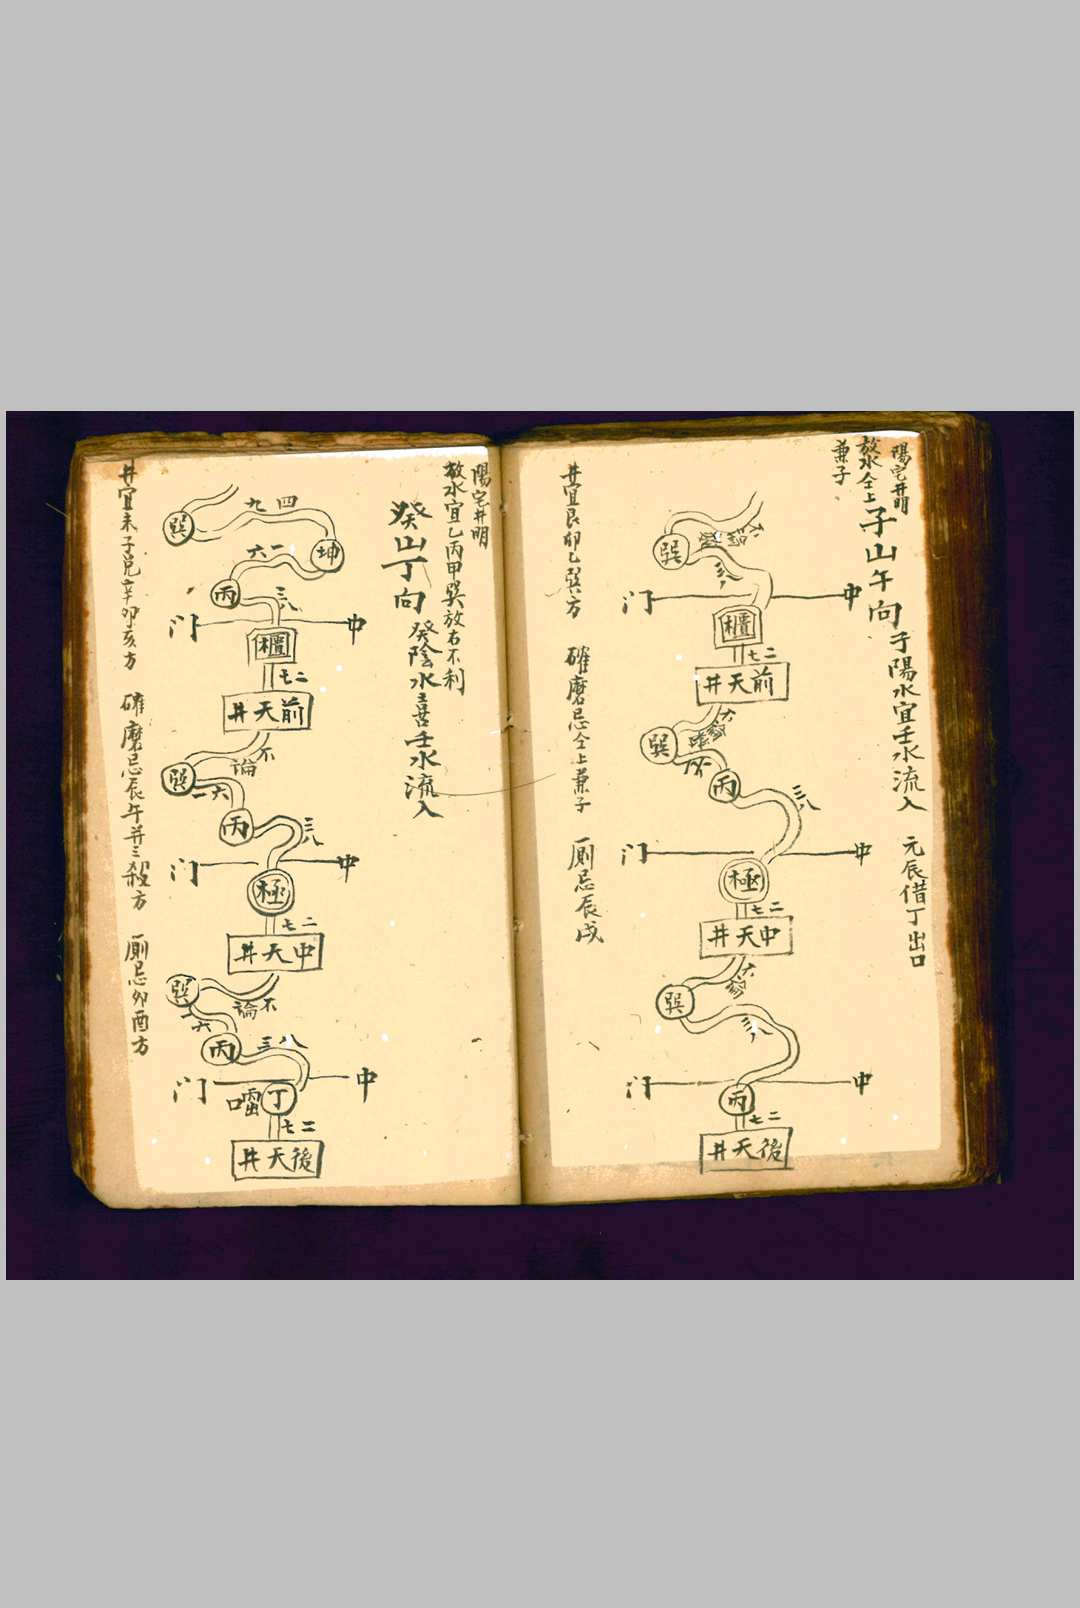 陽宅井明
放水仝上
兼子
子山午向
子陽水宜壬水流入
元辰借丁出口
巽
三八
门
中
櫃
七二
井天前
巽
丙
三八
门
中
極
七二
井天中
巽
门
中
丙
七二
井天後
井宜艮卯乙巽方
碓磨忌仝上兼子
厠忌辰戌
陽宅井明
放水宜乙丙甲巽放右不利
癸山丁向
癸陰水喜壬水流入
九四
巽
坤
六一
丙
三八
门
中
櫃
七二
井天前
不論
巽
一六
丙
三八
门
中
極
七二
井天中
不論
巽
一六
丙
三八
门
中
丁
七二
井天後
井宜未子兑辛卯亥方
碓磨忌辰午并三殺方
厠忌卯酉方